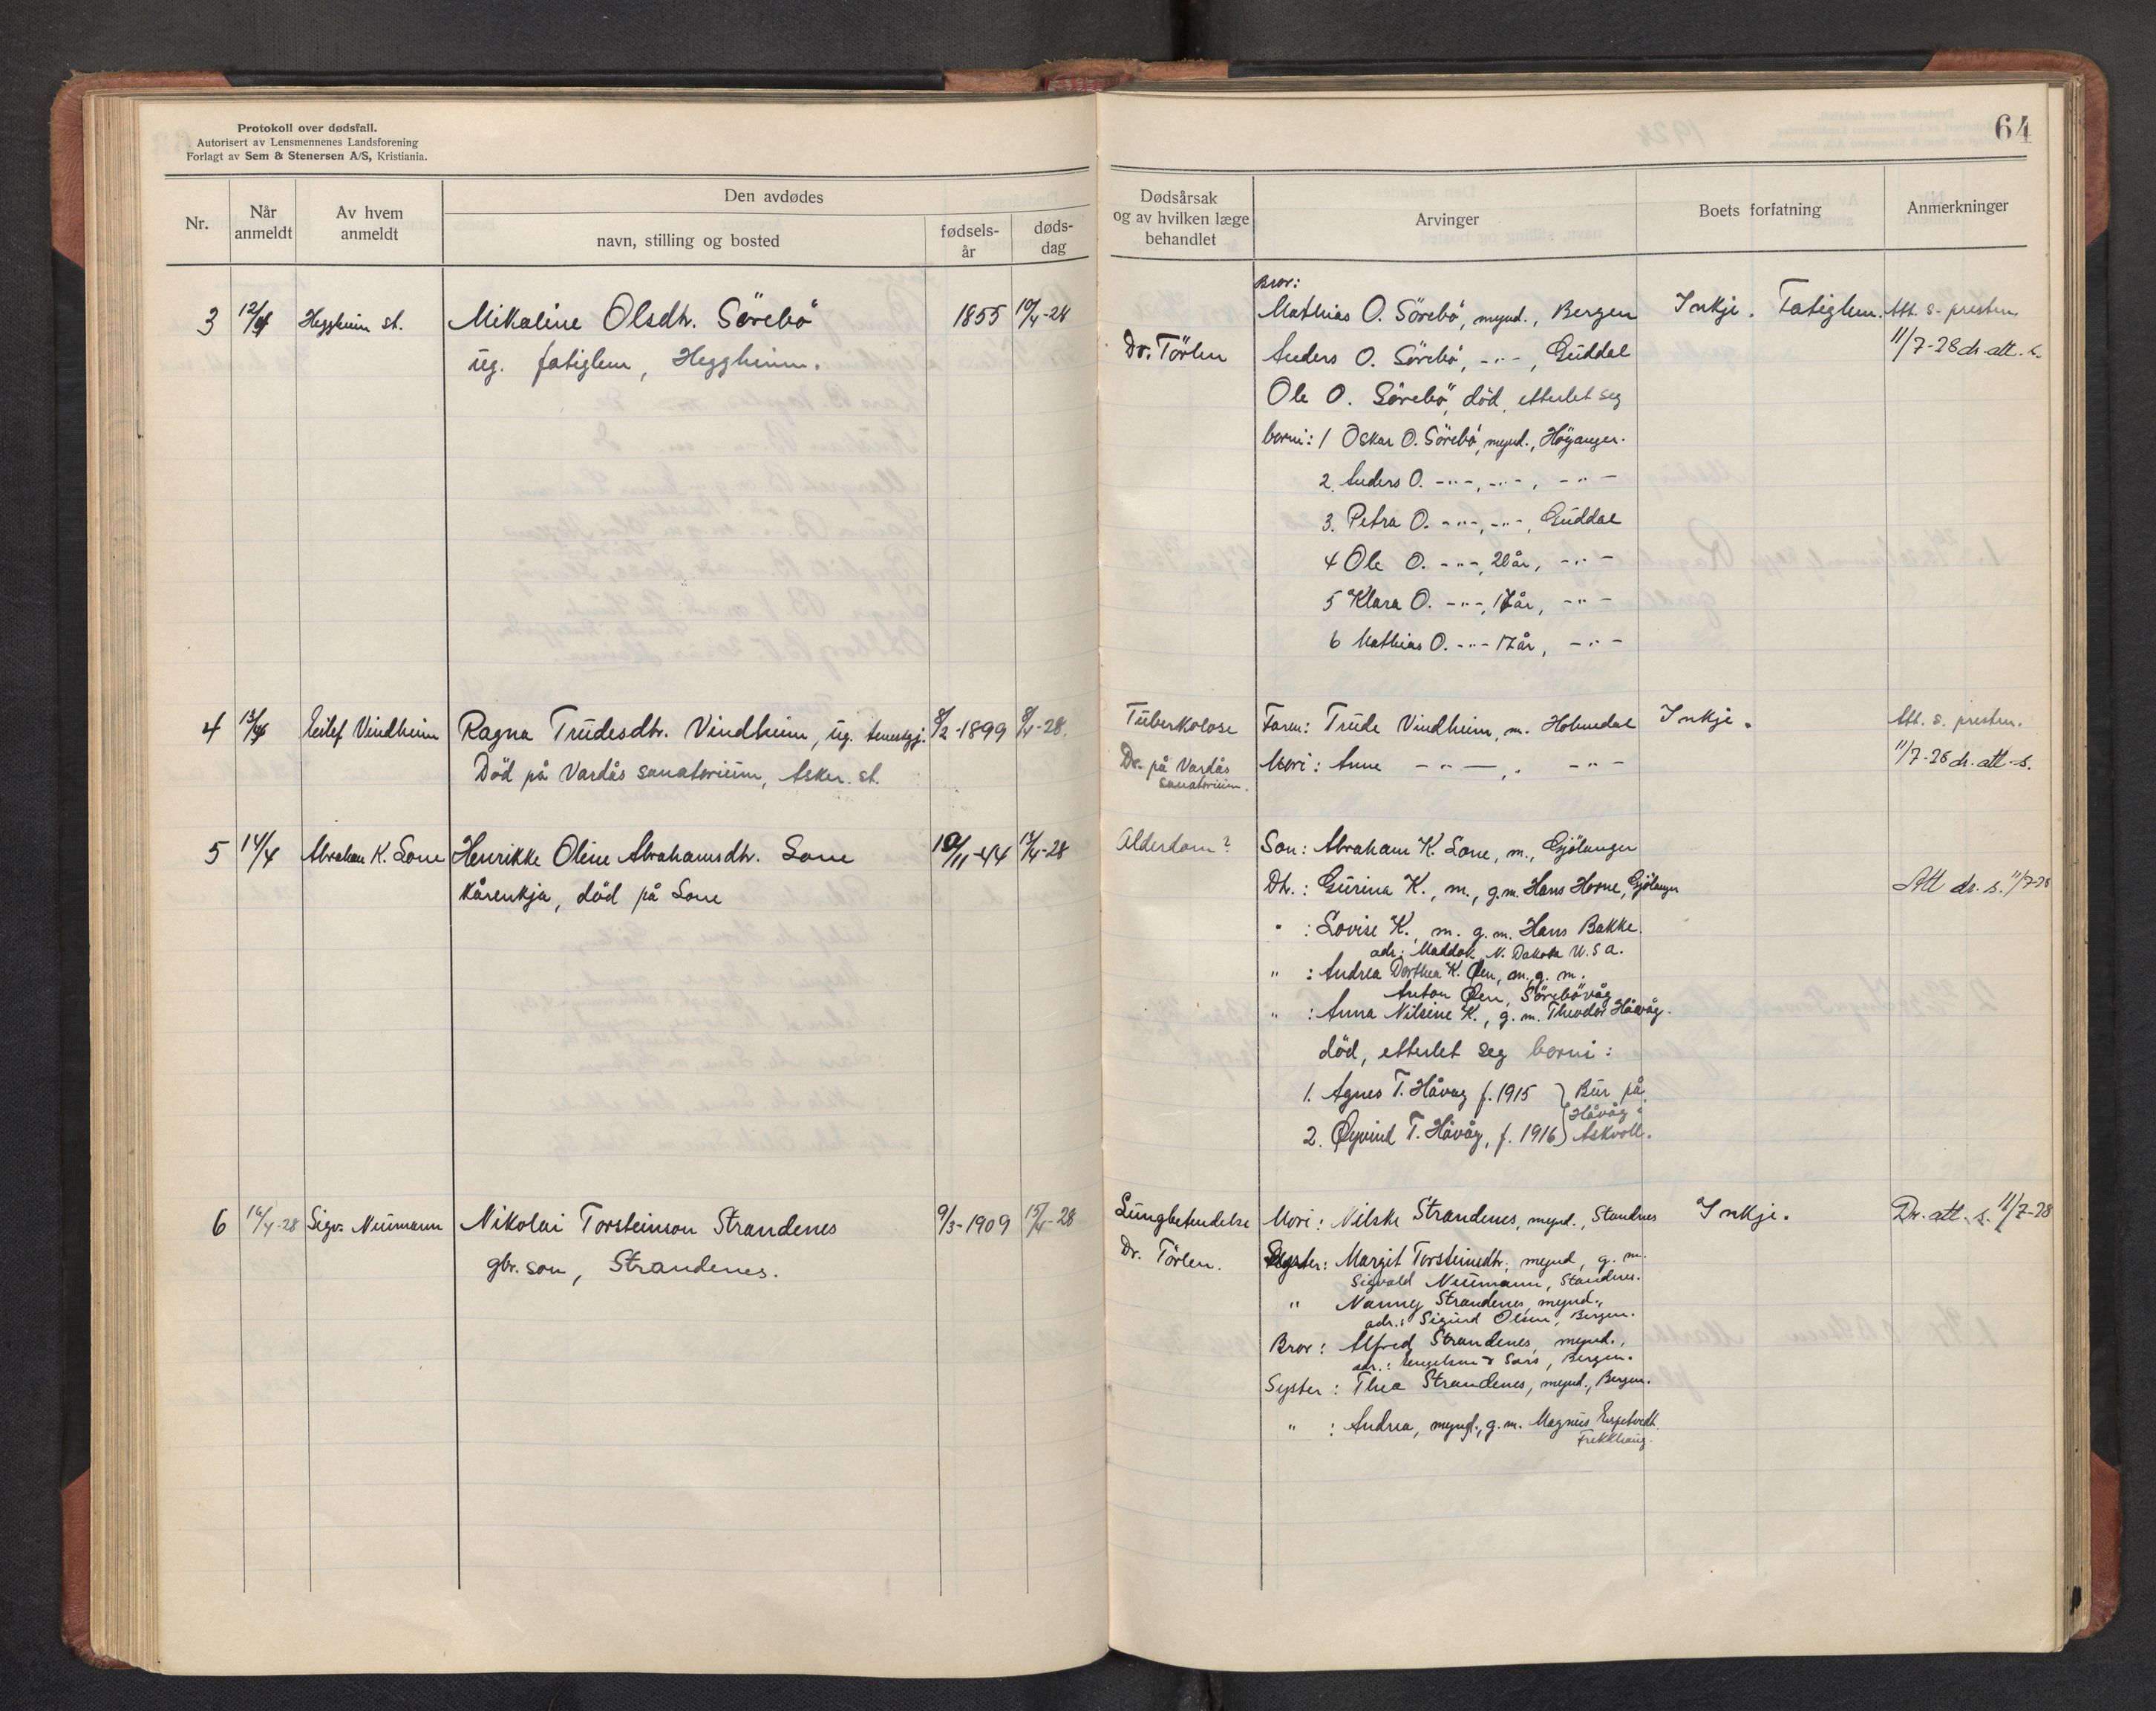 Protokoll over dødsfall.
Autorisert av Lensmennenes Landsforening
Forlagt av Sem & Stenersen A/S, Kristiania.
64
Nr.
Når anmeldt
Av hvem anmeldt
Den avdødes
navn, stilling og bosted
fødsels-år
døds-dag
Dødsårsak og av hvilken læge behandlet
Arvinger
Boets forfatning
Anmerkninger
3 12/4 Heggheim st. Mikaline Olsdtr. Sörebö 1855 10/4-28
ug. fatiglem, Heggheim.
Dr. Törlen
Bror:
Mathias O. Sörebö, mynd., Bergen
Anders O. Sörebö, -"-, Guddal
Ole O. Sörebö, död, etterlet seg
borni: 1 Oskar O. Sörebö, mynd., Höyanger.
2. Anders O. -"-, -"-, -"-
3. Petra O. -"-, -"-, Guddal
4 Ole O. -"-, 20 år, -"-
5 Klara O. -"-, 17 år, -"-
6 Mathias O. -"- 17 år, -"-
Inkje. Fatiglem.
Att. s. presten.
11/7-28 dr. att. s.
4 13/4 Eilef Vindheim Ragna Trudesdtr. Vindheim, ug. tenestgj. 8/2-1899 8/4-28.
Död på Vardås sanatorium, Asker st.
Tuberkolose
Dr. på Vardås
sanatorium.
Faren: Trude Vindheim, m. Holmedal
Mori: Anne -"-, -"-
Inkje.
Att. s. presten.
11/7-28 dr. att. s.
5 14/4 Abraham K. Sone Henrikke Oline Abrahamsdtr. Sone 10/11-44 14/4-28
Kårenkja, död på Sone
Alderdom?
Son: Abraham K. Sone, m., Gjölanger
Dtr.: Gurina K., m., g.m. Hans Horne, Gjölanger
" : Lovise K., m. g.m. Hans Bakke.
adr.: Maddok, N. Dakota U.S.A.
" : Andrea Dorthea K. Øen, m. g. m.
Anton Øen, Sörebövåg
" : Anna Nilsine K., g. m. Theodor Håvåg.
död, etterlet seg borni:
1. Agnes T. Håvåg f. 1915 } Bur på
Håvåg i
2. Øyvind T. Håvåg, f. 1916 } Askvoll.
Att dr. s. 11/7-28
6 16/4-28 Sigv. Neumann Nikolai Torsteinson Strandenes 9/3-1909 15/4-28
gbr. son, Strandenes.
Lungbetendelse
Dr. Törlen.
Mori: Nilske Strandenes, mynd., Standnes
Syster: Margit Torsteinsdtr., mynd, g. m.
Sigvald Neumann, Standnes.
" Nanny Strandenes, mynd.,
adr.: Sigurd Olsen, Bergen.
Bror: Alfred Strandenes, mynd.,
adr.: Sars, Bergen.
Syster: Thea Strandenes, mynd., Bergen.
" : Andrea, mynd., g. m. Magnus
Frekkhaug.
Inkje.
Dr. att. s. 11/7-28